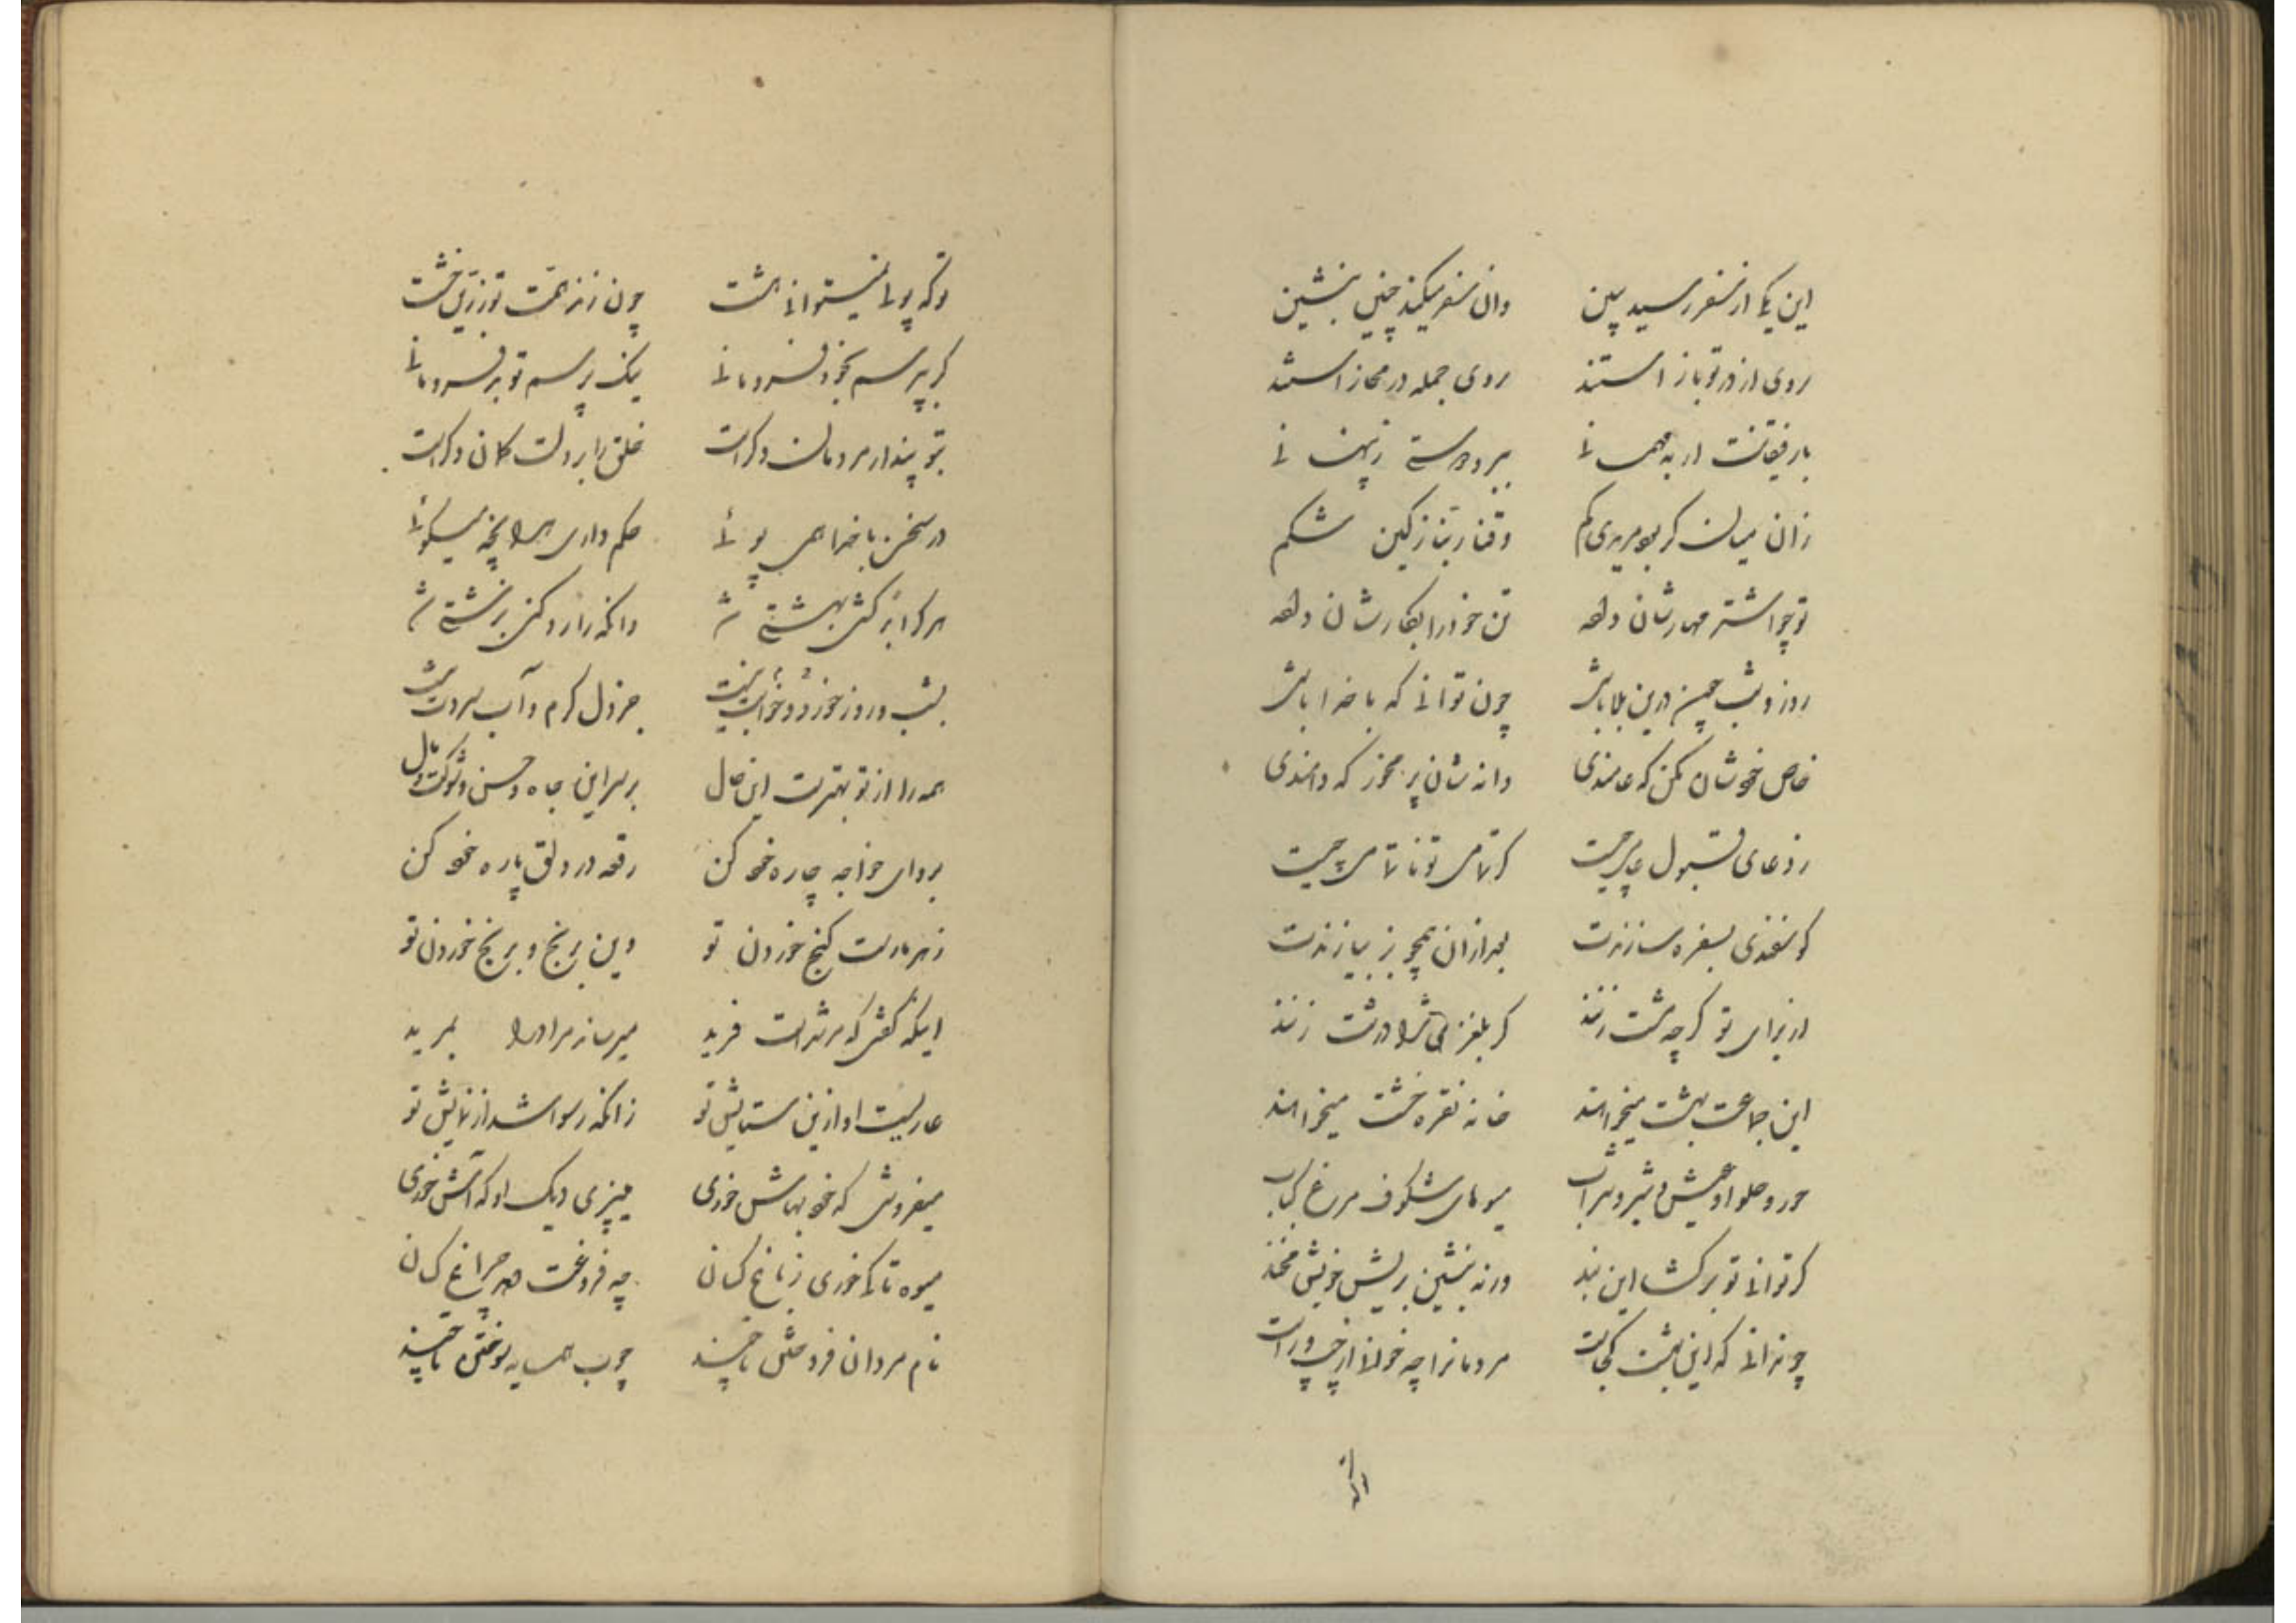 این یکی از سفر رسید ببین وان سفر میکند چنین بنشین
روی از در تو باز استند روی جمله در مجاز استند
با رفیقانت ار به مهمانی
زان میان گر بود مریدی کم شکم
تو چو اشتر مهارشان داده تن خود را بکارشان داده
روز و شب همچنین درین بلا باشی چون توانی که با خدا باشی
خاص خودشان مکن که عامندی دانه شان بر مخور که دامندی
گوسفندی بسفره سازندت بعد از آن همچو بز ببازندت
از برای تو گرچه مشت زنند گر بلغزی ترا درشت زنند
این جماعت بهشت میخواهند خانه نقره خشت میخواهند
حور و حلوا و عیش و شیر و شراب میوهای شگرف مرغ کباب
گر توانی تو برگشا این بند ورنه بنشین بریش خویش مخند
چو ندانی که این بهشت کجاست مردمانرا چه خوانی از چپ و راست
تو که پولی نمیتوانی هشت چون زنندت تو زرین خشت
گر بپرسم بخود فرومانی یک بپرسم تو بر فرومانی
بتو پندار مردمان دگر است خلق را بر دلت گمان دگر است
در سخن با خدا همی پوئی حکم داری هر آنچه میگوئی
هر کرا بر کشی بهشتی شد وانکه را رد کنی برشتی شد
بشب و روز خورد و خوابت نیست جز دل گرم و آب سردت نیست
همه را از تو بهتر است این حال بر سر این جاه و حسن و شوکت و مال
برو ای خواجه چاره خود کن رقعه در دلق پاره خود کن
زهر مارست گنج خوردن تو وین برنج و برنج خوردن تو
اینکه گفتی که مرشد است فرید میرساند مراد را بمرید
عار نیست او ازین ستایش تو زانکه رسوا شد از نمایش تو
میفروشی که خود بهاش خوری میپزی دیک او که آش خوری
میوه تا کی خوری ز باغ کسان چه فروغت دهد چراغ کسان
نام مردان فروختن تا چند چوب همسایه سوختن تا چند